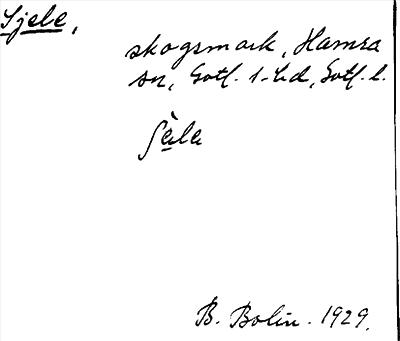 Sjele,
skogsmark, Hamra
sn, Gotl. s. hd, Gotl. l.
B. Bolin. 1929.